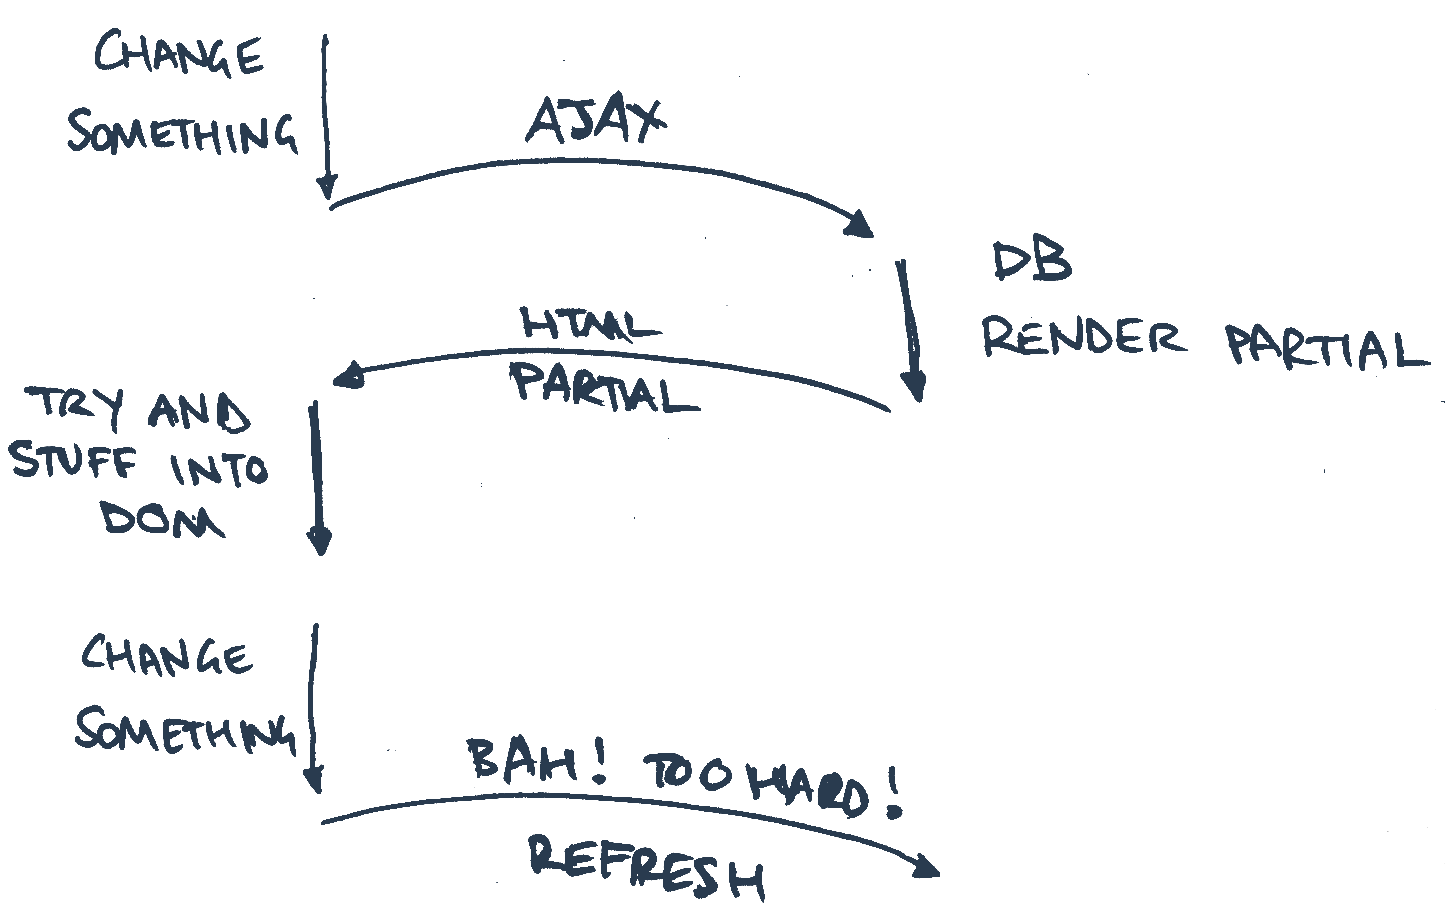 CHANGE
SOMETHING
AJAX
DB
RENDER PARTIAL
HTML
PARTIAL
TRY AND
STUFF INTO
DOM
CHANGE
SOMETHING
BAH! TOO HARD!
REFRESH